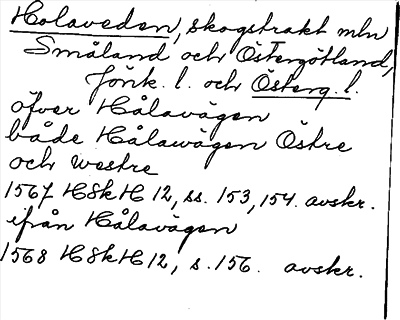 Holaveden, skogstrakt mln
Småland och Östergötland,
Jönk. l. och Österg. l.
öfver Hålavägen
både Hålawägen Östre
och westre
1567 HSkH 12, ss. 153, 154. avskr.
ifrån Hålavägen
1568 HSkH 12, s. 156. avskr.